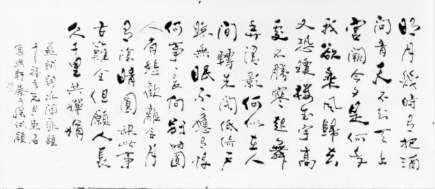 明月幾時有把酒
問青天不知天上
宮闕今夕是何年
我欲乘風歸去
又恐瓊樓玉宇高
處不勝寒起舞
弄清影何似在人
間轉朱閣低綺戶
照無眠不應有恨
何事長向別時圓
人有悲歡離合月
有陰晴圓缺此事
古難全但願人長
久千里共嬋娟